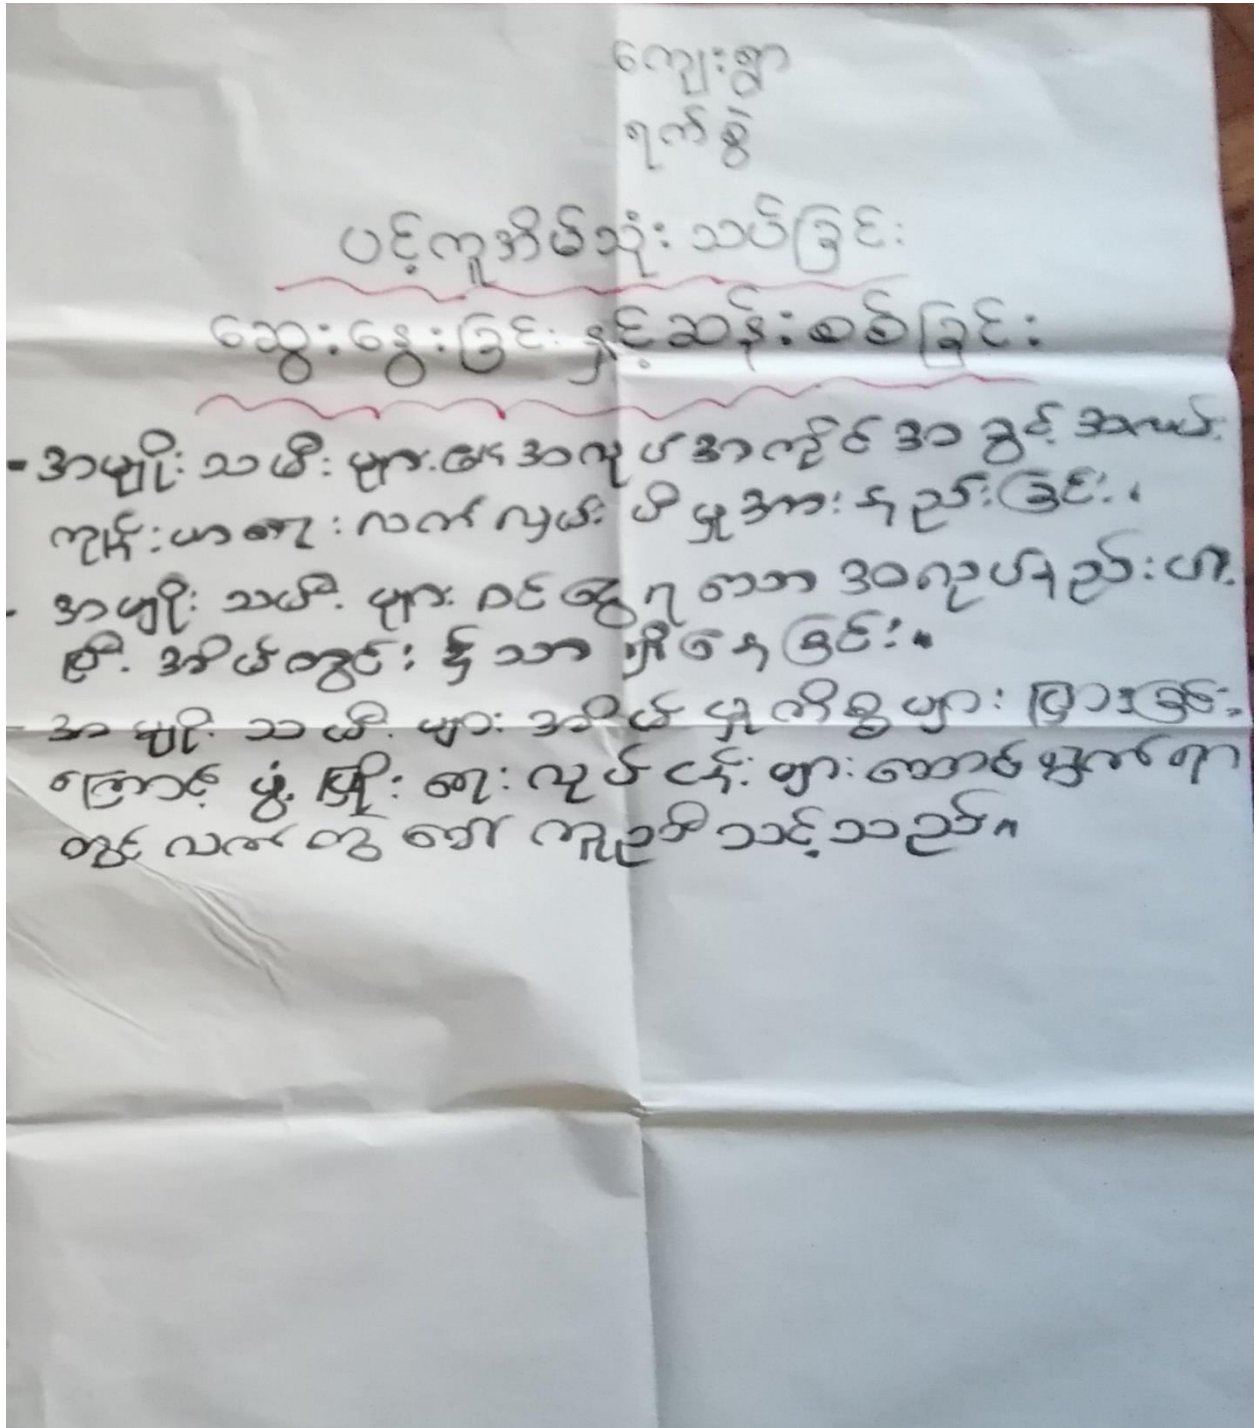 ကျေးရွာ
ရက်စွဲ
ပင့်ကူအိမ်သုံး သပ်ခြင်း
ဆွေးနွေးခြင်း နှင့်ဆန်းစစ်ခြင်း
- အမျိုးသမီးများ၏ အလုပ်အကိုင် အခွင့်အလမ်း
ကျန်းမာရေး လက်လှမ်းမီမှု အားနည်းခြင်း၊
- အမျိုးသမီးများ ဝင်ငွေရသော အလုပ်နည်းပါး
ပြီး အိမ်တွင်း၌သာ ရှိနေခြင်း။
- အမျိုးသမီးများ အိမ်မှုကိစ္စများ ပြားခြင်း
ကြောင့် ဖွံ့ဖြိုးရေးလုပ်ငန်းများဆောင်ရွက်ရာ
တွင် လက်တွဲခေါ် ကူညီသင့်သည်။